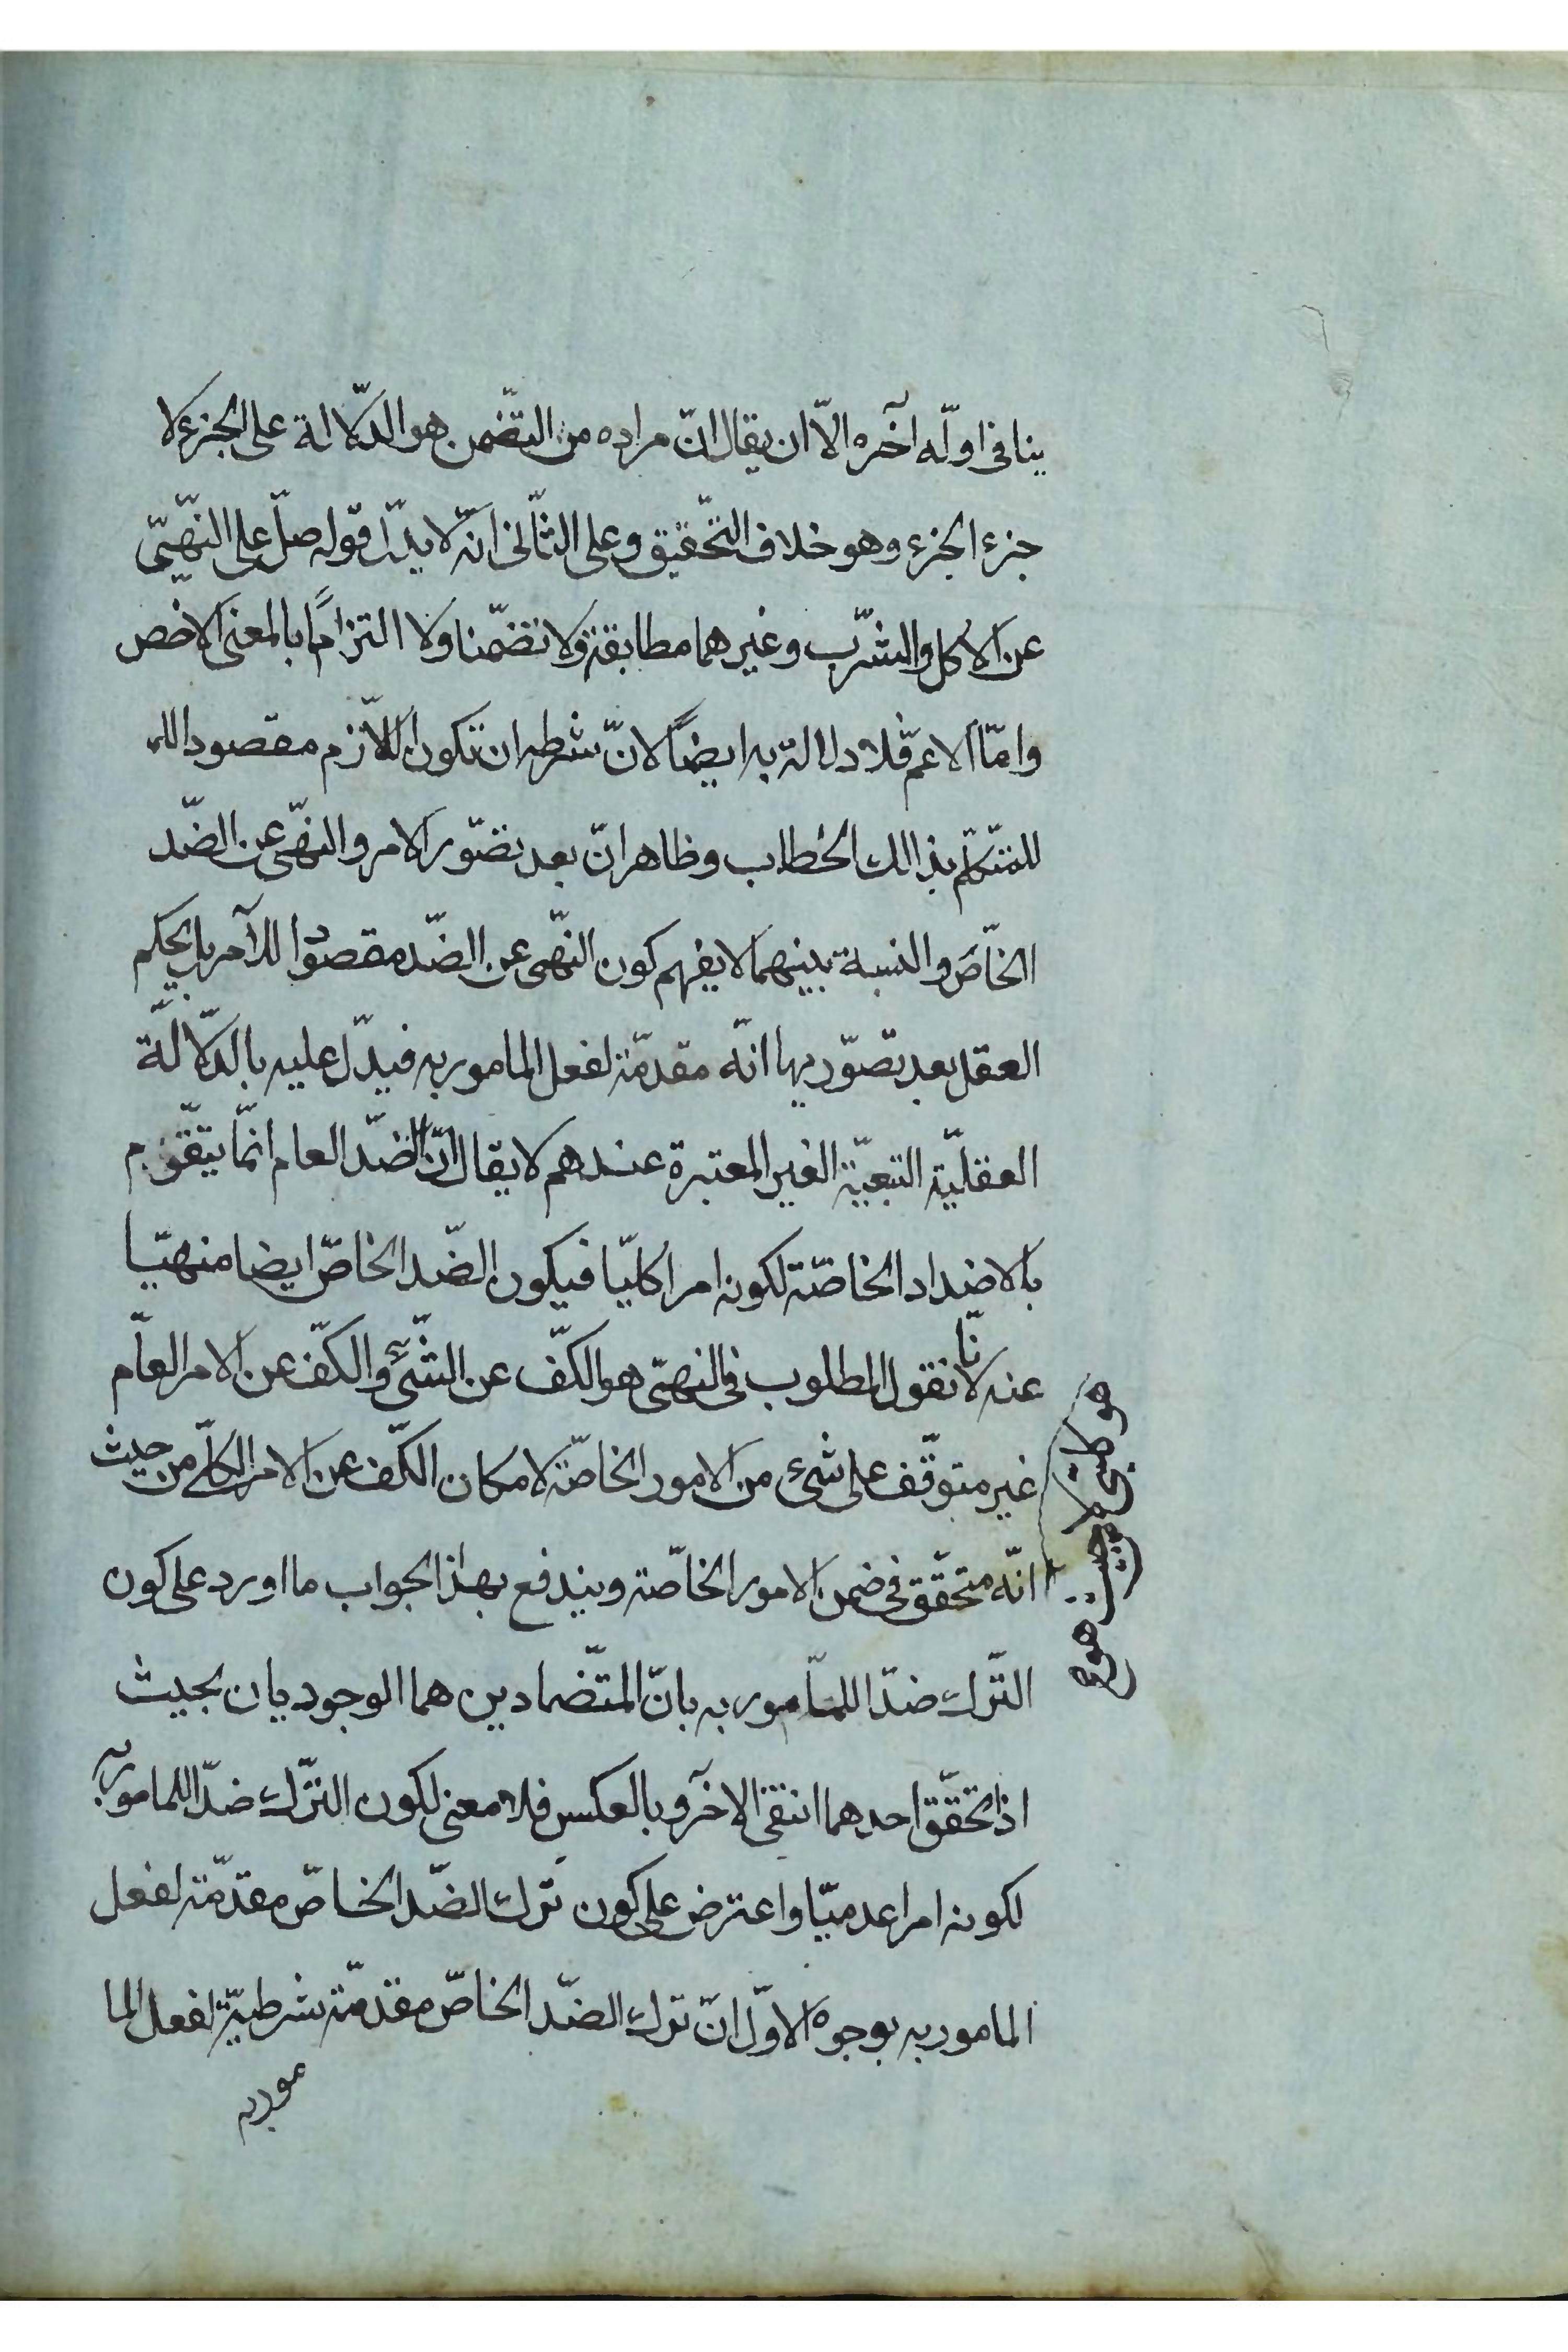 ينافى اوله آخره الّا ان يقال انّ مراده من التضّمن هو الدّلالة على الجزء لا
جزء الجزء وهو خلاف التّحقيق وعلى الثّانى انّه لا يدّل قوله صلّ على النّهىّ
عن الاكل والشرّب وغيرهما مطابقة ولا تضمّنا ولا التزامًا بالمعنى الاخص
وامّا الاعمّ فلا دلالة به ايضًا لانّ شرطه ان تكون اللّازم مقصودا للـ
للمتّكلم بذالك الخطاب وظاهر انّ بعد تصّور الامر والنّهى عن الضّد
الخاّص والنسبة بينهما لا يفهم كون النّهى عن الضّد مقصودًا للآمر بل يحكم
العقل بعد تصوّريها انّه مقدمّة لفعل المامور به فيدّل عليه بالدّلالّة
العقليّة التبعيّة الغير المعتبرة عندهم لا يقال انّ الضّد العام انمّا يتّقوم
بالاضداد الخاصّة لكونه امرا كليّا فيكون الضّد الخاصّ ايضا منهيّا
عنه لانّا نقول المطلوب فى النهىّ هو الكفّ عن الشّئ والكفّ عن الامر العاّم
غير متوقّف على شئ من الامور الخاصّة لامكان الكّف عن الامر الكلّى من حيث
هو كلى لا من حيث هو صح
انّه متحقّق فى ضمن الامور الخاصّة ويندفع بهذا الجواب ما اورد على كون
التّرك ضدّا للمأمور به بانّ المتّضادين هما الوجوديان بحيث
اذا تحقّق احدهما انتفى الآخر وبالعكس فلا معنى لكون التّرك ضدّا للمامور به
لكونه امرا عدميّا واعترض على كون ترك الضّد الخاصّ مقدّمة لفعل
المامور به بوجوه الاوّل انّ ترك الضّد الخاصّ مقدّمة شرطيّة لفعل الما
مور به